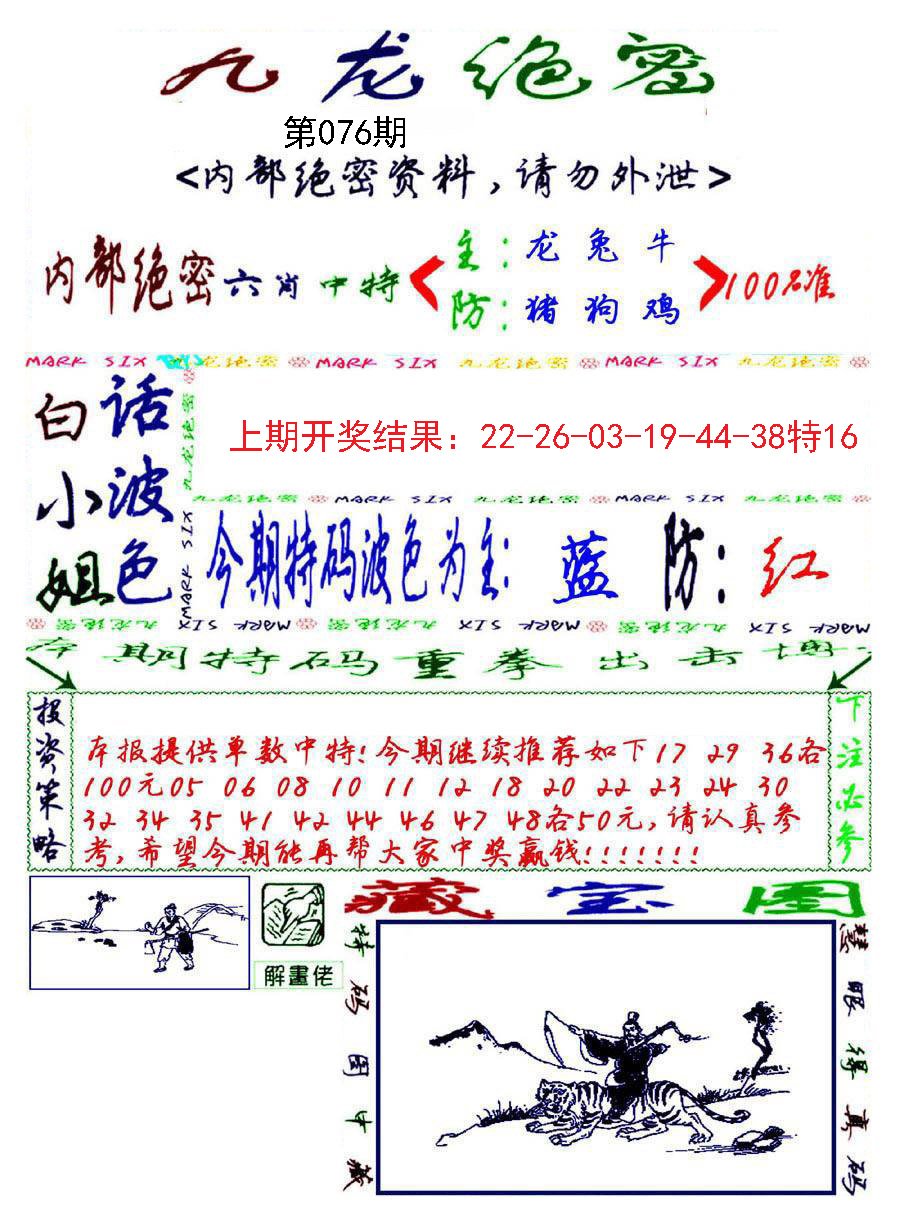 九龙绝密
第076期
<内部绝密资料,请勿外泄>
内部绝密六肖中特
主:龙兔牛
防:猪狗鸡
100%准
MARK SIX 九龙绝密 MARK SIX 九龙绝密 MARK SIX 九龙绝密
白话
小波
姐色
九龙绝密
MARK SIX
上期开奖结果：22-26-03-19-44-38特16
九龙绝密 MARK SIX 九龙绝密 MARK SIX 九龙绝密
今期特码波色为主:蓝 防:红
九龙绝密 MARK SIX 九龙绝密 MARK SIX 九龙绝密 MARK SIX
期特码重拳出击
投资策略
本报提供单数中特!今期继续推荐如下17 29 36各
100元05 06 08 10 11 12 18 20 22 23 24 30
32 34 35 41 42 44 46 47 48各50元,请认真参
考,希望今期能再帮大家中奖赢钱!!!!!!!
下注必参
解畫佬
藏宝图
特码图中藏
慧眼得真码